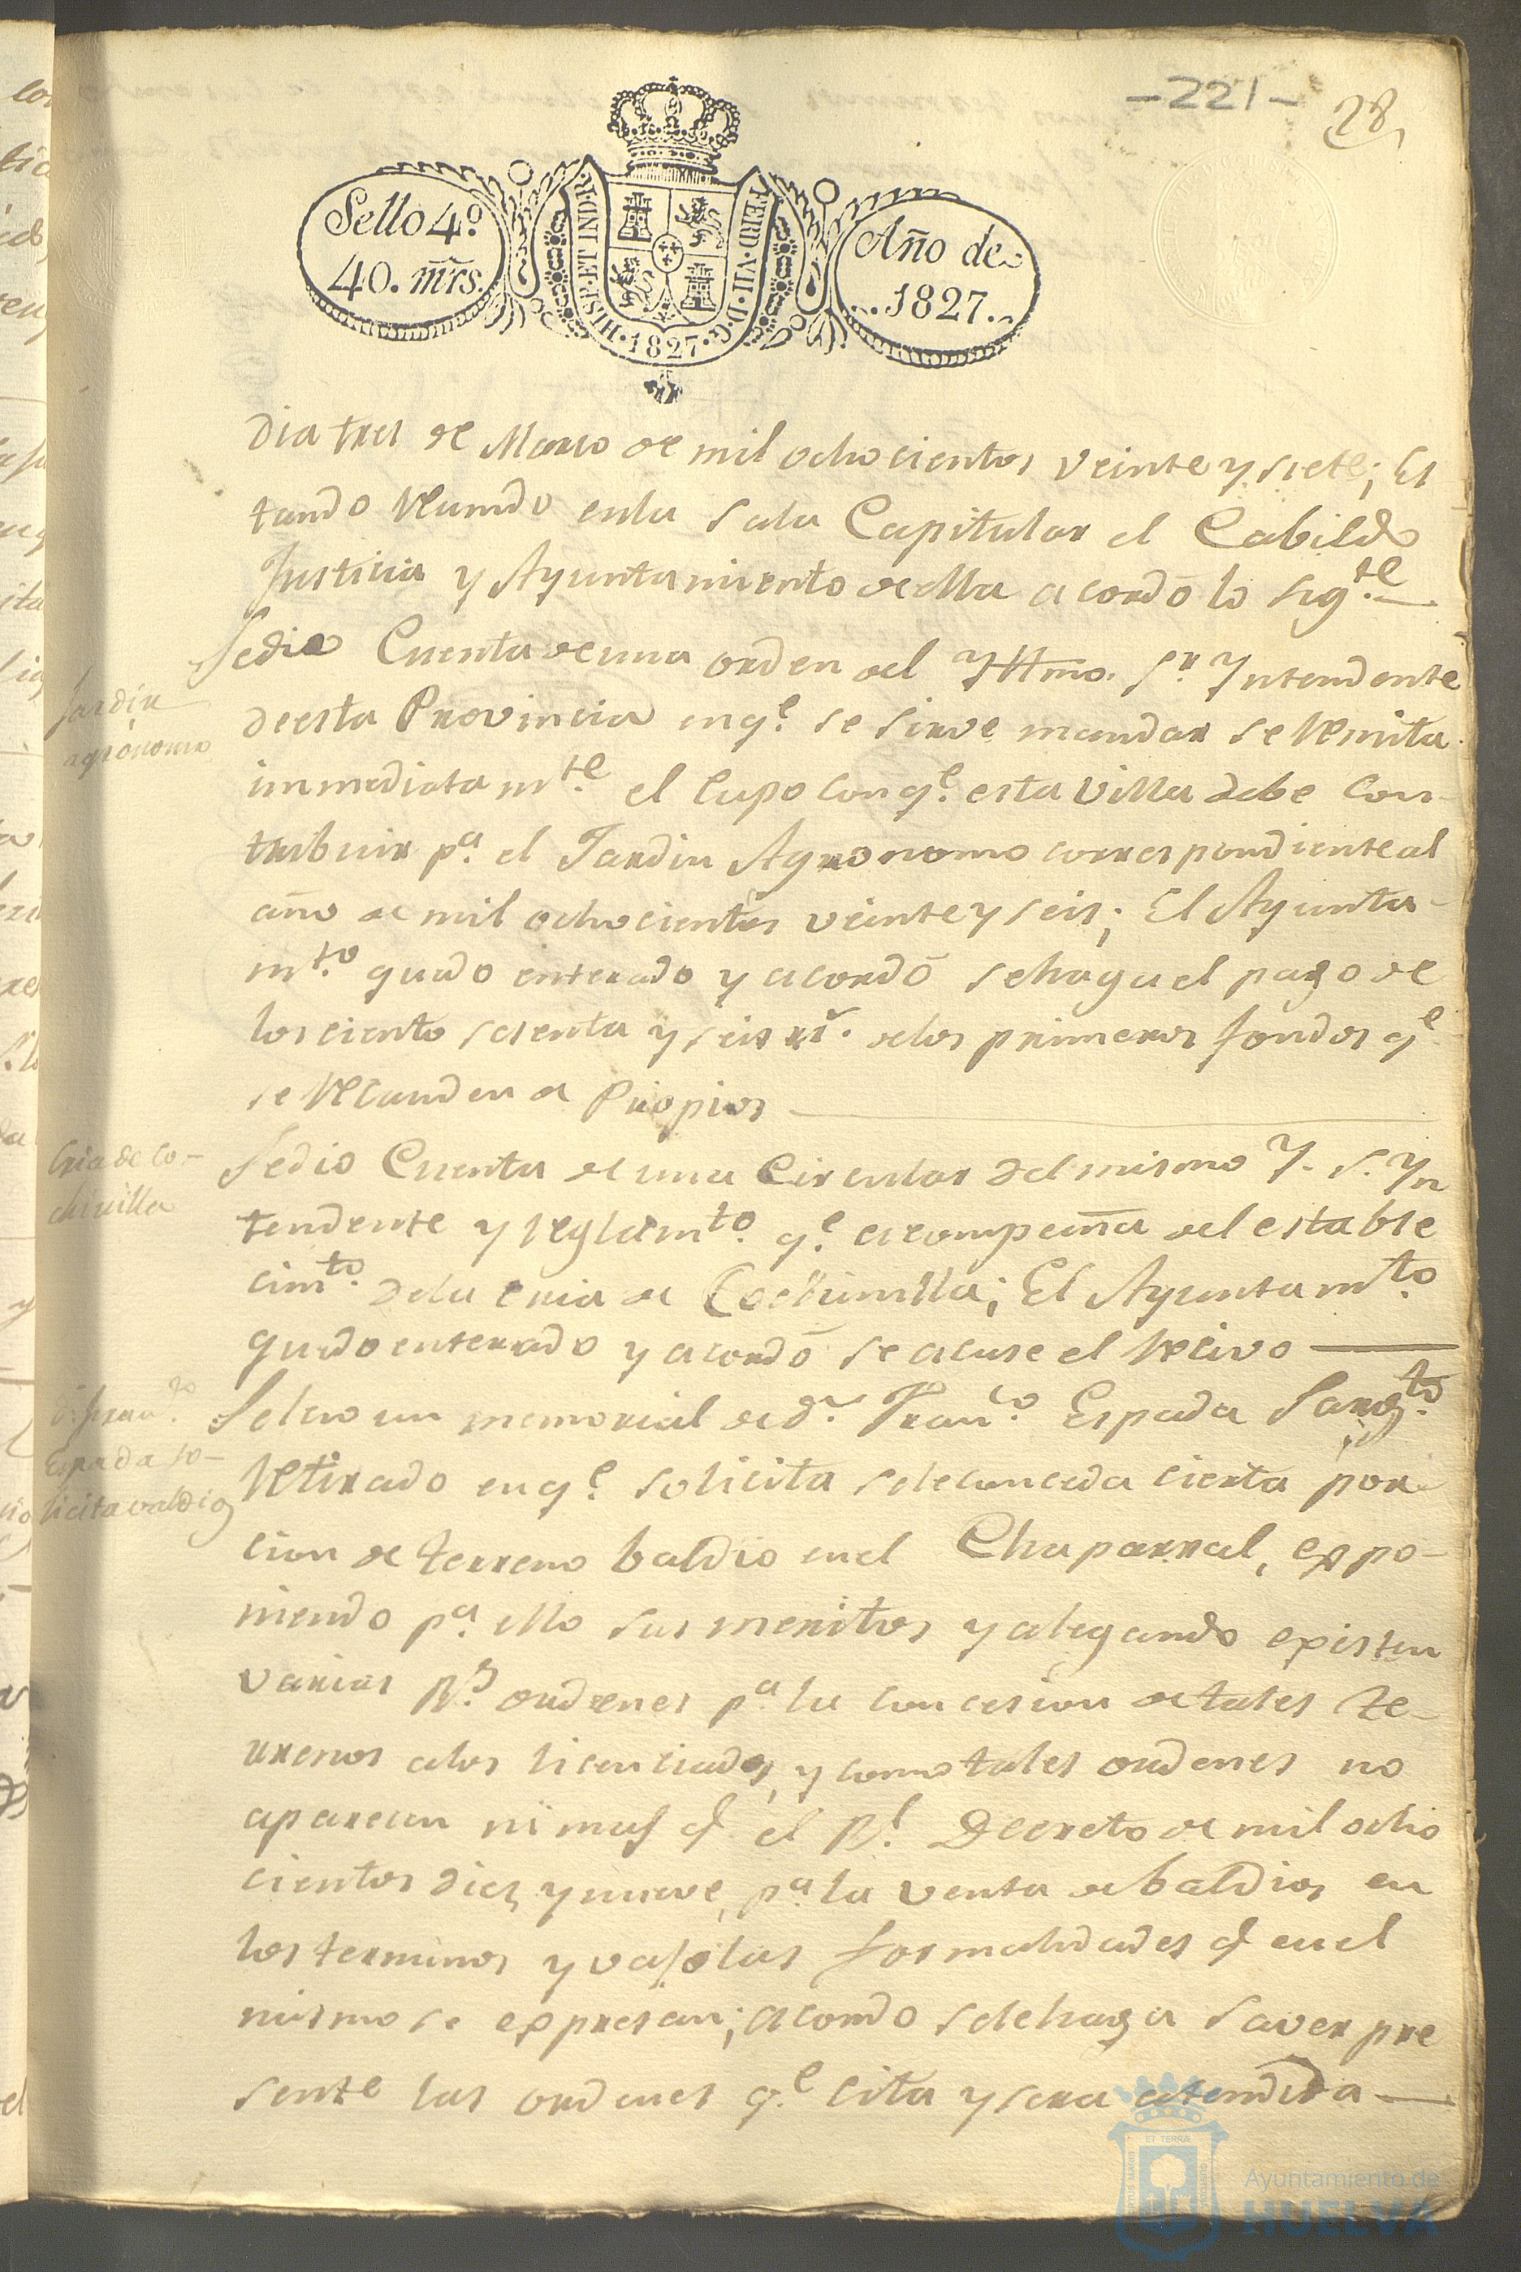 -221-
28
Sello 4º
40. mrs.
HISP. ET IND. R.
FERD. VII. D. G.
1827
Año de
1827.
Dia tres de Marso de mil ochocientos veinte y siete; Es
tando Reunido enla Sala Capitular el Cabildo
Justicia y Ayuntamiento de ella acordó lo sigte.
Jardin
agronomo
Sedio Cuenta de una orden del Yltmo. Sr. Yntendente
deesta Provincia en qe. se sirve mandar se Remita
inmediatamte. el Cupo con qe. esta Villa debe Con
tribuir pa. el Jardin Agronomo correspondiente al
año de mil ochocientos veinte y seis; El Ayunta-
mto. quedo enterado y acordó sehaga el pago de
los ciento sesenta y seis rs. delos primeros fondos qe.
se Recauden de Propios
Cria de Co-
chinilla
Sedio Cuenta de una Circular del mismo Y. S. Yn
tendente y reglamto. qe. acompaña del estable
cimto. dela cria de Cochinilla; El Ayuntamto.
quedo enterado y acordó se acuse el Recivo
Espada so-
licita valdios
Seleio un memorial de dn. Franco. Espada Sargto.
Retirado en qe. solicita seleconceda cierta por
cion de terreno baldio enel Chaparral, expo-
niendo pa. ello sus meritos y alegando existen
varias Rs. ordenes pa. la concesion de tales te-
rrenos alos licenciados, y como tales ordenes no
aparecan ni mas q el Rl. Decreto de mil ocho
cientos diez y nueve, pa. la venta de baldios en
los terminos y vajo las formalidades q enel
mismo se expresan; acordo selehaga saver pre
sente las ordenes qe. cita y sera atendida
Ayuntamiento de
HUELVA